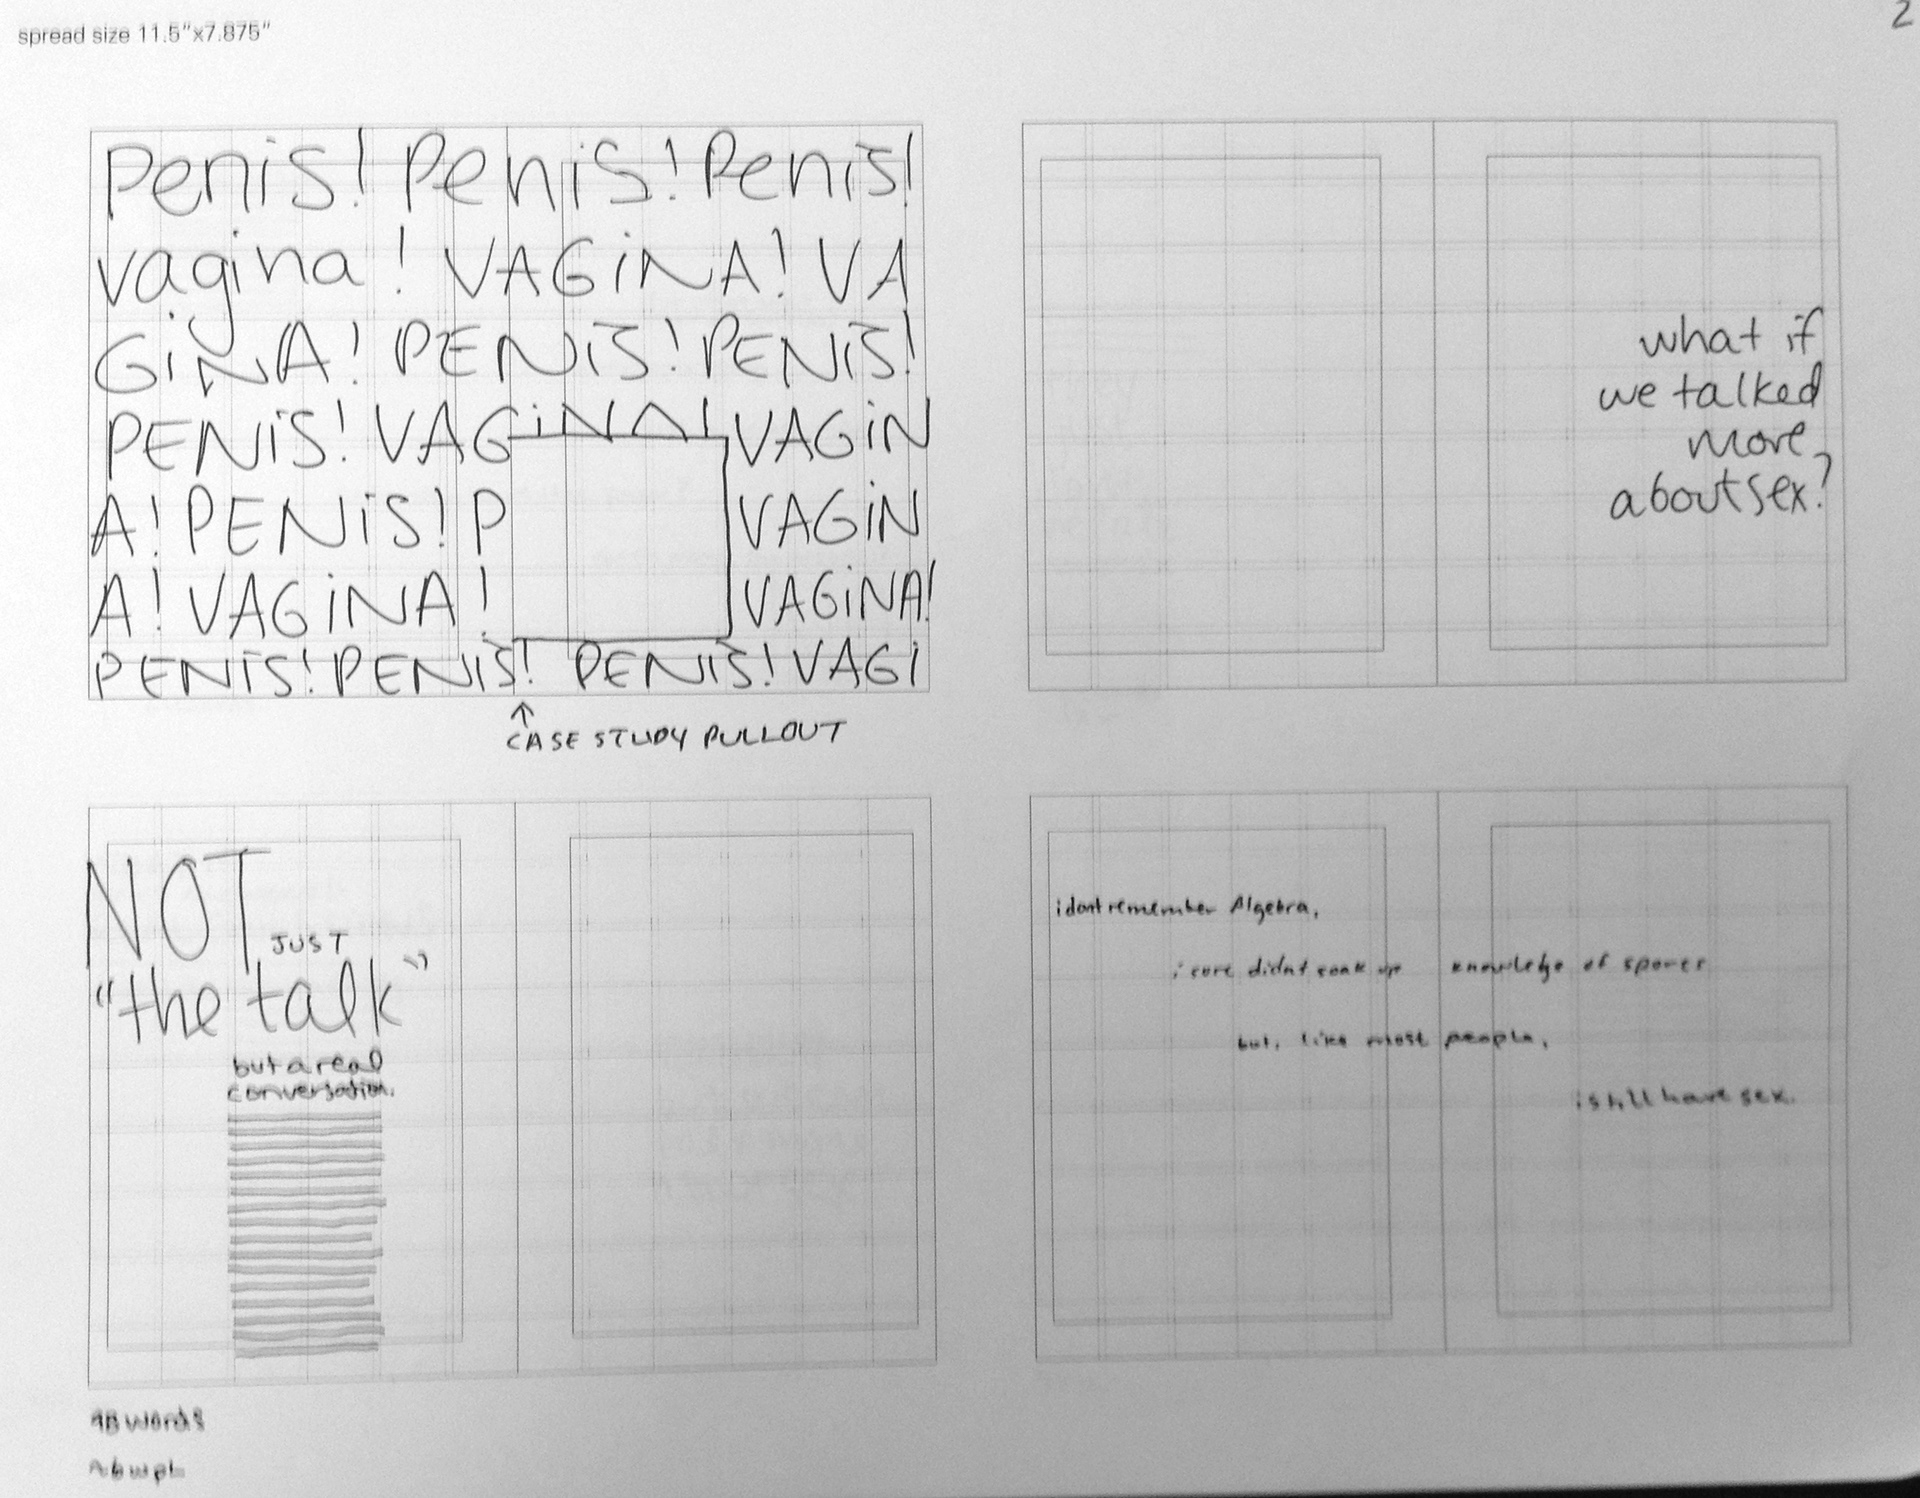 spread size 11.5"x7.875"
2
Penis! Penis! Penis!
vagina! VAGiNA! VA
GiNA! PENiS! PENiS!
PENiS! VAGiNA! VAGiN
A! PENiS! P VAGiN
A! VAGiNA! VAGiNA!
PENiS! PENiS! PENiS! VAGi
↑
CASE STUDY PULLOUT
what if
we talked
more
about sex?
NOT
JUST
"the talk"
but a real
conversation.
i dont remember Algebra,
i sure didnt soak up knowledge of spores
but, like most people,
i still have sex.
98 words